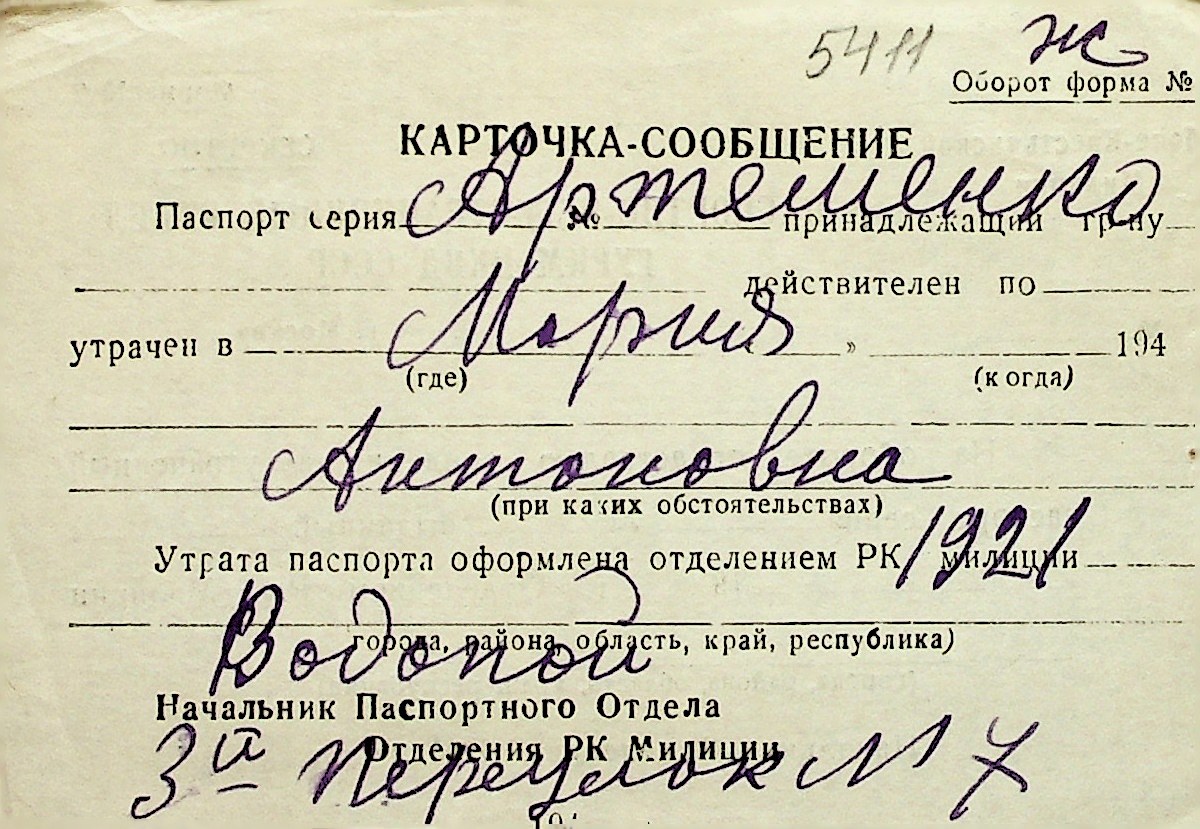 5411 ж
Оборот форма №
КАРТОЧКА-СООБЩЕНИЕ
Артеменко
Паспорт серия № принадлежащий гр-ну
действителен по
Мария
утрачен в " 194
(где) (когда)
Антоновна
(при каких обстоятельствах)
1921
Утрата паспорта оформлена отделением РК милиции
Водопой
города, района, область, край, республика)
Начальник Паспортного Отдела
Отделения РК Милиции
3й переулок № 7